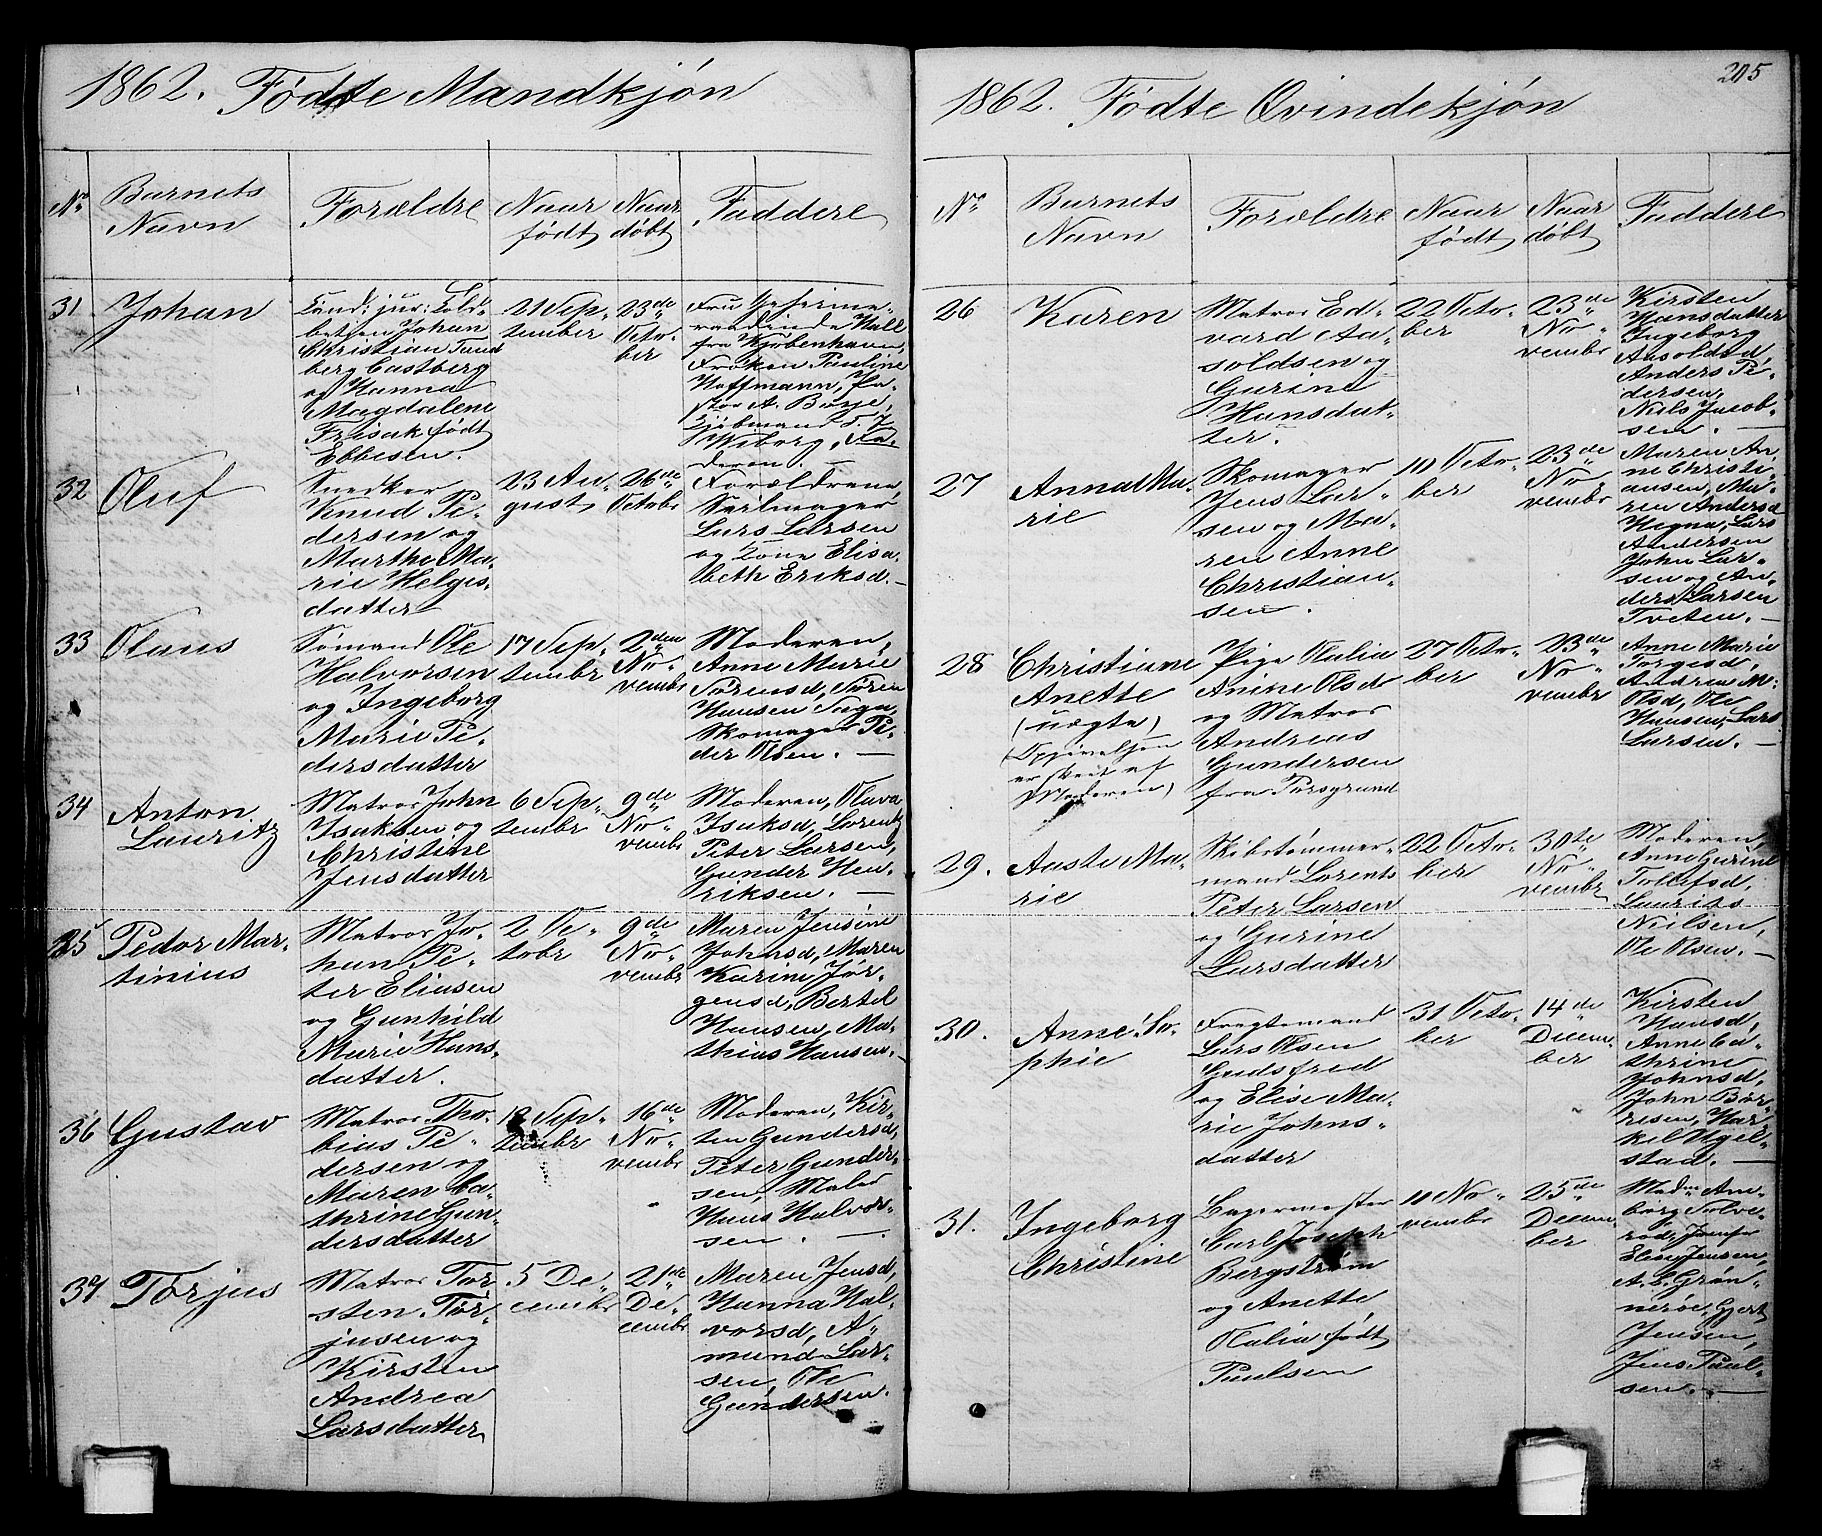 1862. Fødte Mandkjøn
No
Barnets
Navn
Forældre
Naar
født
Naar
døbt
Faddere
31
Johan
Cand: jur: Told-
betjen Johan
Christian Tand
berg Castberg
og Hanna
Magdalene
Frisak født
Ebbesen.
21 Sep-
tember
23de
Octo-
ber
Fru Geheime-
raadinde Hall
fra Kjøbenhavn,
Frøken Pauline
Hoffmann, Pa-
stor A. Borje,
Wiborg, Fa-
deren. —
32
Oluf
Snedker
Knud Pe-
dersen og
Marthe Ma-
rie Helges-
datter
23 Au-
gust
26de
Octobr
Forældrene,
Seilmager
Lars Larsen
og Kone Elisa-
beth Eriksd. —
33
Olaus
Sømand Ole
Halvorsen
og Ingeborg
Marie Pe-
dersdatter
17 Sep-
tembr
2den
No-
vembr
Moderen,
Anne Marie
Sørensd, Søren
Hansen Saga,
Skomager Pe-
der Olsen. —
34
Anton
Lauritz
Matros John
Isaksen og
Christine
Jensdatter
6 Sep-
tembr
9de
No-
vembr
Moderen, Olava
Isaksd, Lorentz
Peter Larsen,
Gunder Hen-
riksen. —
35
Peder Mar-
tinius
Matros Jo-
han Pe-
ter Eliasen
og Gunhild
Marie Hans-
datter.
2 Oc-
tobr
9de
No-
vembr
Maren Jensine
Johnsd, Maren
Karine Jør-
gensd, Bertel
Hansen, Ma-
thias Hansen. —
36
Gustav
Matros Tho-
bias Pe-
dersen og
Maren Ca-
thrine Gun-
dersdatter
Sep-
tembr
16de
No-
vembr
Moderen, Kir-
sten Gundersd,
Peter Gunder-
sen, Maler
Hans Halvor-
sen. —
37
Torjus
Matros Tor-
sten Tor-
jusen og
Kirsten
Andrea
Larsdatter
5 De-
cembr
21de
De-
cembr
Maren Jensd,
Hanna Hal-
vorsd, A-
mund Lar-
sen, Ole
Gundersen.
205
1862. Fødte Qvindekjøn
No
Barnets
Navn
Forældre
Naar
født
Naar
døbt
Faddere
26
Karen
Matros Ed-
vard Aa-
soldsen og
Gurine
Hansdat-
ter.
22 Octo-
ber
23de
No-
vembr
Kirsten
Hansdatter
Ingeborg
Aasoldsd,
Anders Pe-
dersen,
Niels Jacob-
sen. —
27
Anna Ma-
rie
Skomager
Jens Lar-
sen og Ma-
ren Anne
Christian-
sen.
10 Octo-
ber
23de
No-
vembr
Maren An-
ne Christi-
ansen, Ma-
ren Andersd
Hegna, Lars
Andersen
John Lar-
sen og An-
ders Larsen
Tveten. —
28
Christiane
Anette
(uægte)
(Opgivelsen
er skeet af
Moderen)
Pige Olalia
Anine Olsd
og Matros
Andreas
Gundersen
fra Porsgrund
27 Octo-
ber
23de
No-
vembr
Anne Marie
Torgesd,
Andrine M:
Olsd, Ole
Hansen, Lars
Larsen. —
29.
Aaste Ma-
rie
Skibstømmer-
mand Lorents
Peter Larsen
og Gurine
Larsdatter
22 Octo-
ber
30te
No-
vembr
Moderen,
Anne Gurine
Tollefsd,
Laurits
Nielsen,
Ole Olsen. —
30.
Anne So-
phie
Fragtemand
Lars Olsen
Gudsfred
og Elise Ma-
rie Johns-
datter
31 Octo-
ber
14de
Decem-
ber
Kirsten
Hansd,
Anne Ca-
thrine
Johnsd,
John Bør-
resen, Har-
kel Ugel-
stad. —
31.
Ingeborg
Christine
Lagermester
Carl Joseph
Bergstrøm
og Anette
Olalia født
Paulsen
10 No-
vembr
25de
Decem-
ber
Madm Am-
borg Solve-
rød, Jomfru
Eline Jensen,
A. L. Grøn-
nerøe, Gjert
Jensen,
Jens Paul-
sen. —